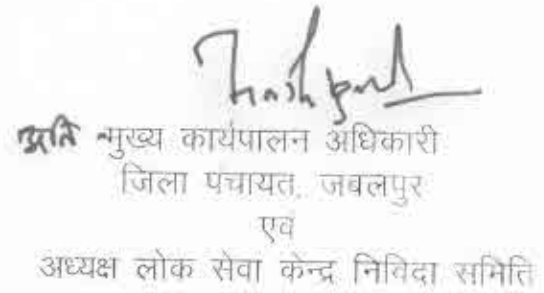 अति मुख्य कार्यपालन अधिकारी
जिला पंचायत, जबलपुर
एवं
अध्यक्ष लोक सेवा केन्द्र निविदा समिति